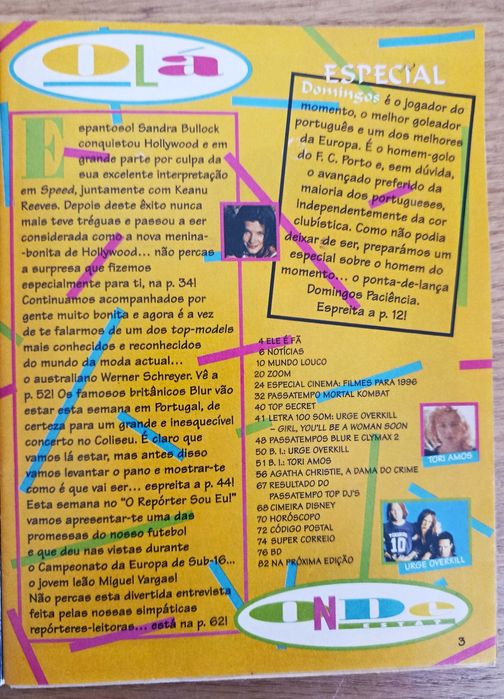 Olá
Espantoso! Sandra Bullock
conquistou Hollywood e em
grande parte por culpa da
sua excelente interpretação
em Speed, juntamente com Keanu
Reeves. Depois deste êxito nunca
mais teve tréguas e passou a ser
considerada como a nova menina-
-bonita de Hollywood... não percas
a surpresa que fizemos
especialmente para ti, na p. 34!
Continuamos acompanhados por
gente muito bonita e agora é a vez
de te falarmos de um dos top-models
mais conhecidos e reconhecidos
do mundo da moda actual...
o australiano Werner Schreyer. Vê a
p. 52! Os famosos britânicos Blur vão
estar esta semana em Portugal, de
certeza para um grande e inesquecível
concerto no Coliseu. É claro que
vamos lá estar, mas antes disso
vamos levantar o pano e mostrar-te
como é que vai ser... espreita a p. 44!
Esta semana no "O Repórter Sou Eu!"
vamos apresentar-te uma das
promessas do nosso futebol
e que deu nas vistas durante
o Campeonato da Europa de Sub-16...
o jovem leão Miguel Vargas!
Não percas esta divertida entrevista
feita pelas nossas simpáticas
repórteres-leitoras... está na p. 62!
ESPECIAL
Domingos é o jogador do
momento, o melhor goleador
português e um dos melhores
da Europa. É o homem-golo
do F. C. Porto e, sem dúvida,
o avançado preferido da
maioria dos portugueses,
independentemente da cor
clubística. Como não podia
deixar de ser, preparámos um
especial sobre o homem do
momento... o ponta-de-lança
Domingos Paciência.
Espreita a p. 12!
4 ELE É FÃ
6 NOTÍCIAS
10 MUNDO LOUCO
20 ZOOM
24 ESPECIAL CINEMA: FILMES PARA 1996
32 PASSATEMPO MORTAL KOMBAT
40 TOP SECRET
41 LETRA 100 SOM: URGE OVERKILL
– GIRL, YOU'LL BE A WOMAN SOON
48 PASSATEMPOS BLUR E CLYMAX 2
50 B. I.: URGE OVERKILL
51 B. I.: TORI AMOS
56 AGATHA CHRISTIE, A DAMA DO CRIME
67 RESULTADO DO
PASSATEMPO TOP DJ'S
68 CIMEIRA DISNEY
70 HORÓSCOPO
72 CÓDIGO POSTAL
74 SUPER CORREIO
76 BD
82 NA PRÓXIMA EDIÇÃO
TORI AMOS
10
URGE OVERKILL
ONDE
ESTÁ?
3